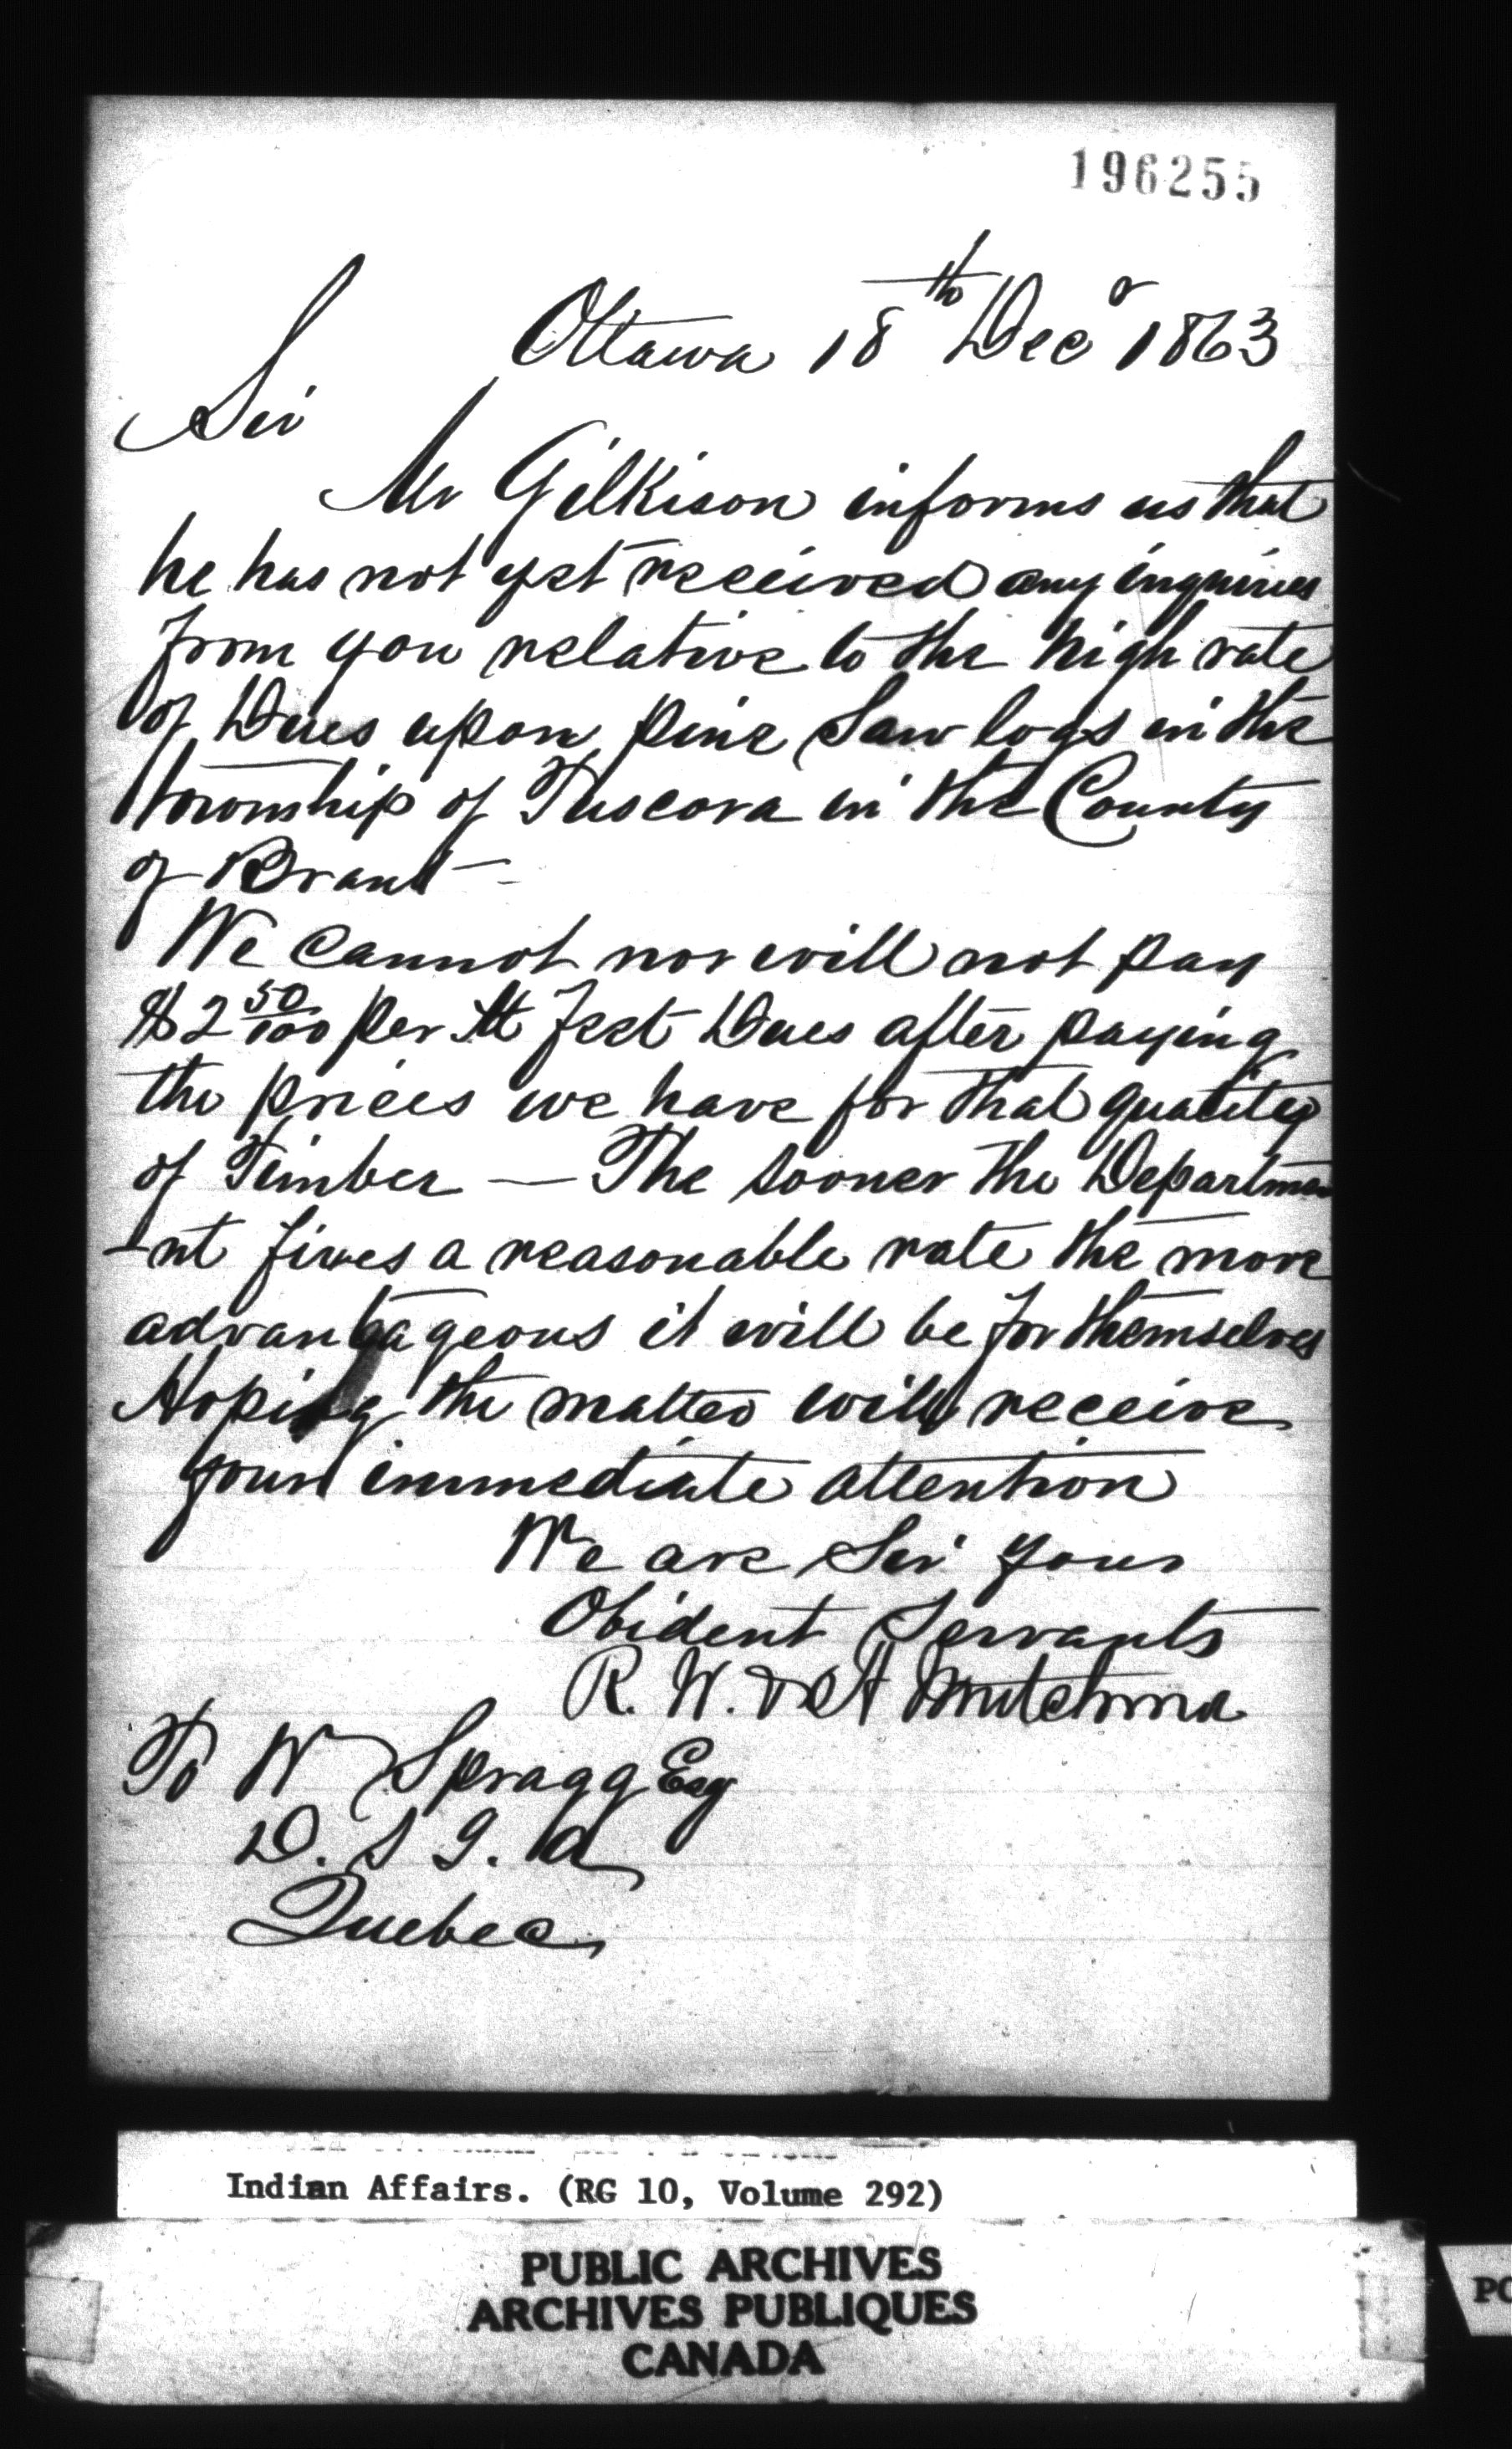 196255
Ottawa 18th Decr 1863
Sir
Mr Gilkison informs us that
he has not yet received any inquiries
from you relative to the high rate
of Dues upon pine Saw logs in the
township of Tuscora in the County
of Brant -
We Cannot nor will not pay
$2 50/100 per M feet Dues after paying
the prices we have for that quality
of Timber — The sooner the Departme
-nt fixes a reasonable rate the more
advantageous it will be for themselves
Hoping the matter will receive
your immediate attention
We are Sir your
Obident Servants
R. W. & A
To W Spragg Esq
D. S I. A
Quebec
Indian Affairs. (RG 10, Volume 292)
PUBLIC ARCHIVES
ARCHIVES PUBLIQUES
CANADA
PU